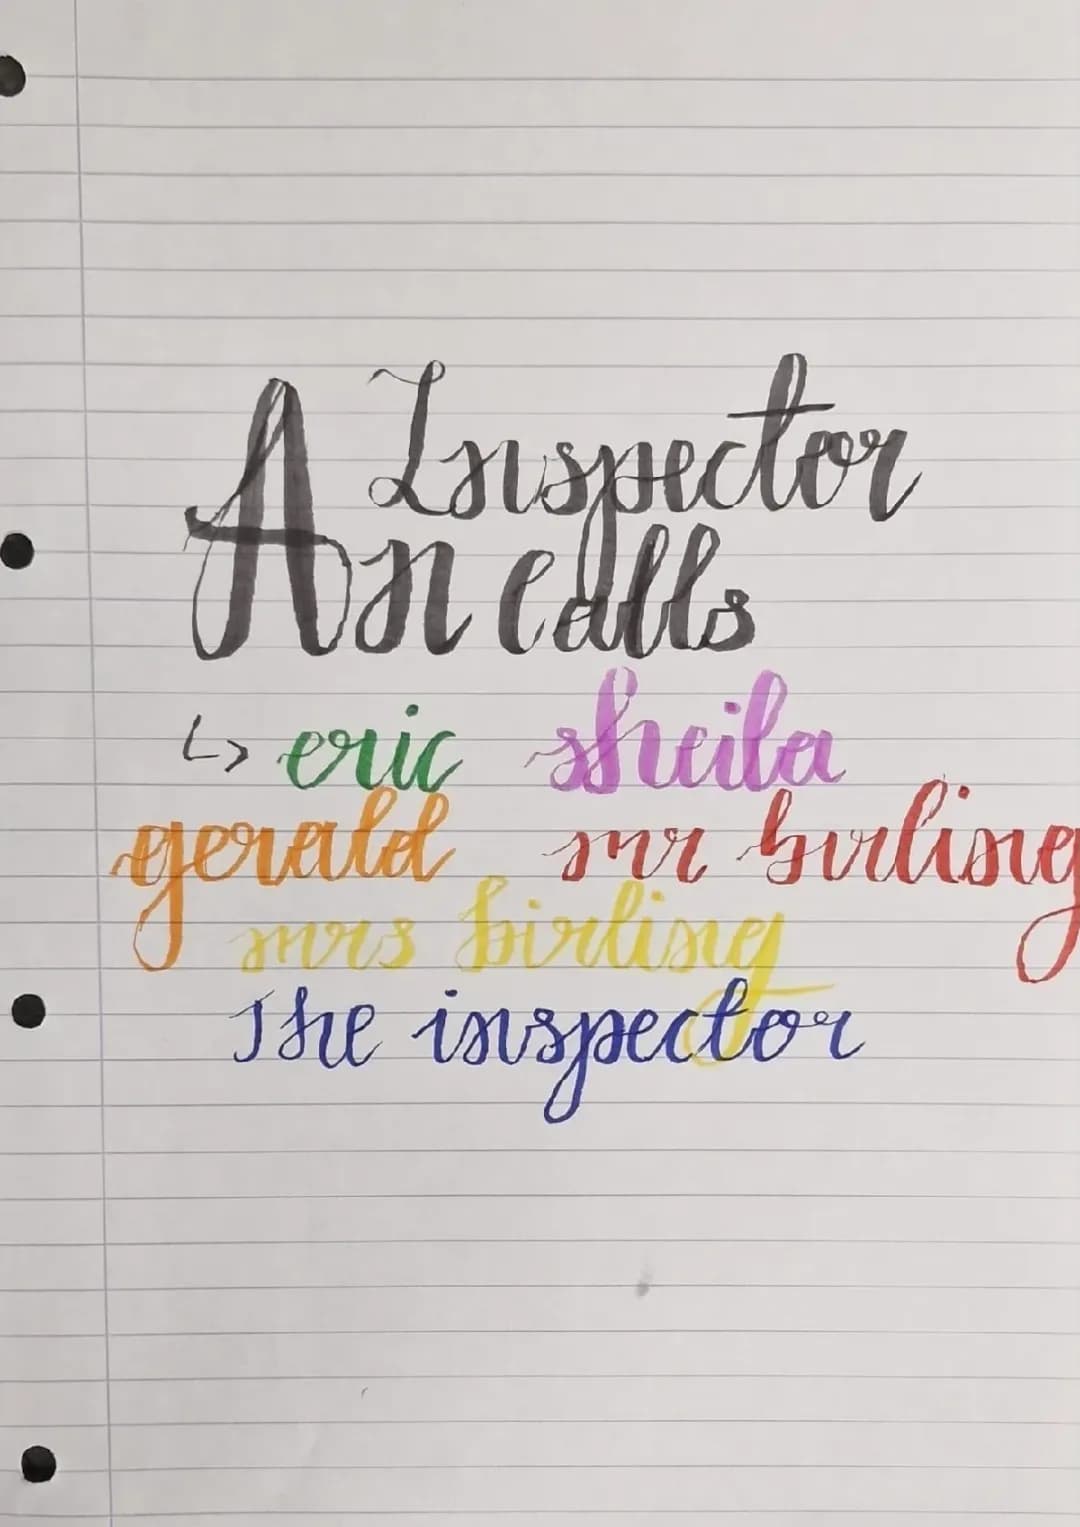 An Inspector
Calls
↳ eric sheila
gerald mr birling
mrs birling
The inspector